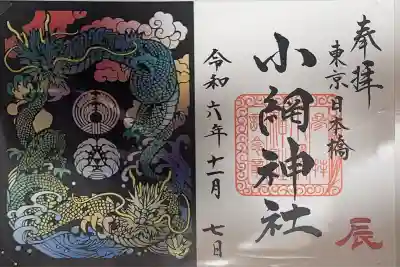 奉拝
東京日本橋
小網神社
令和六年十一月七日
辰